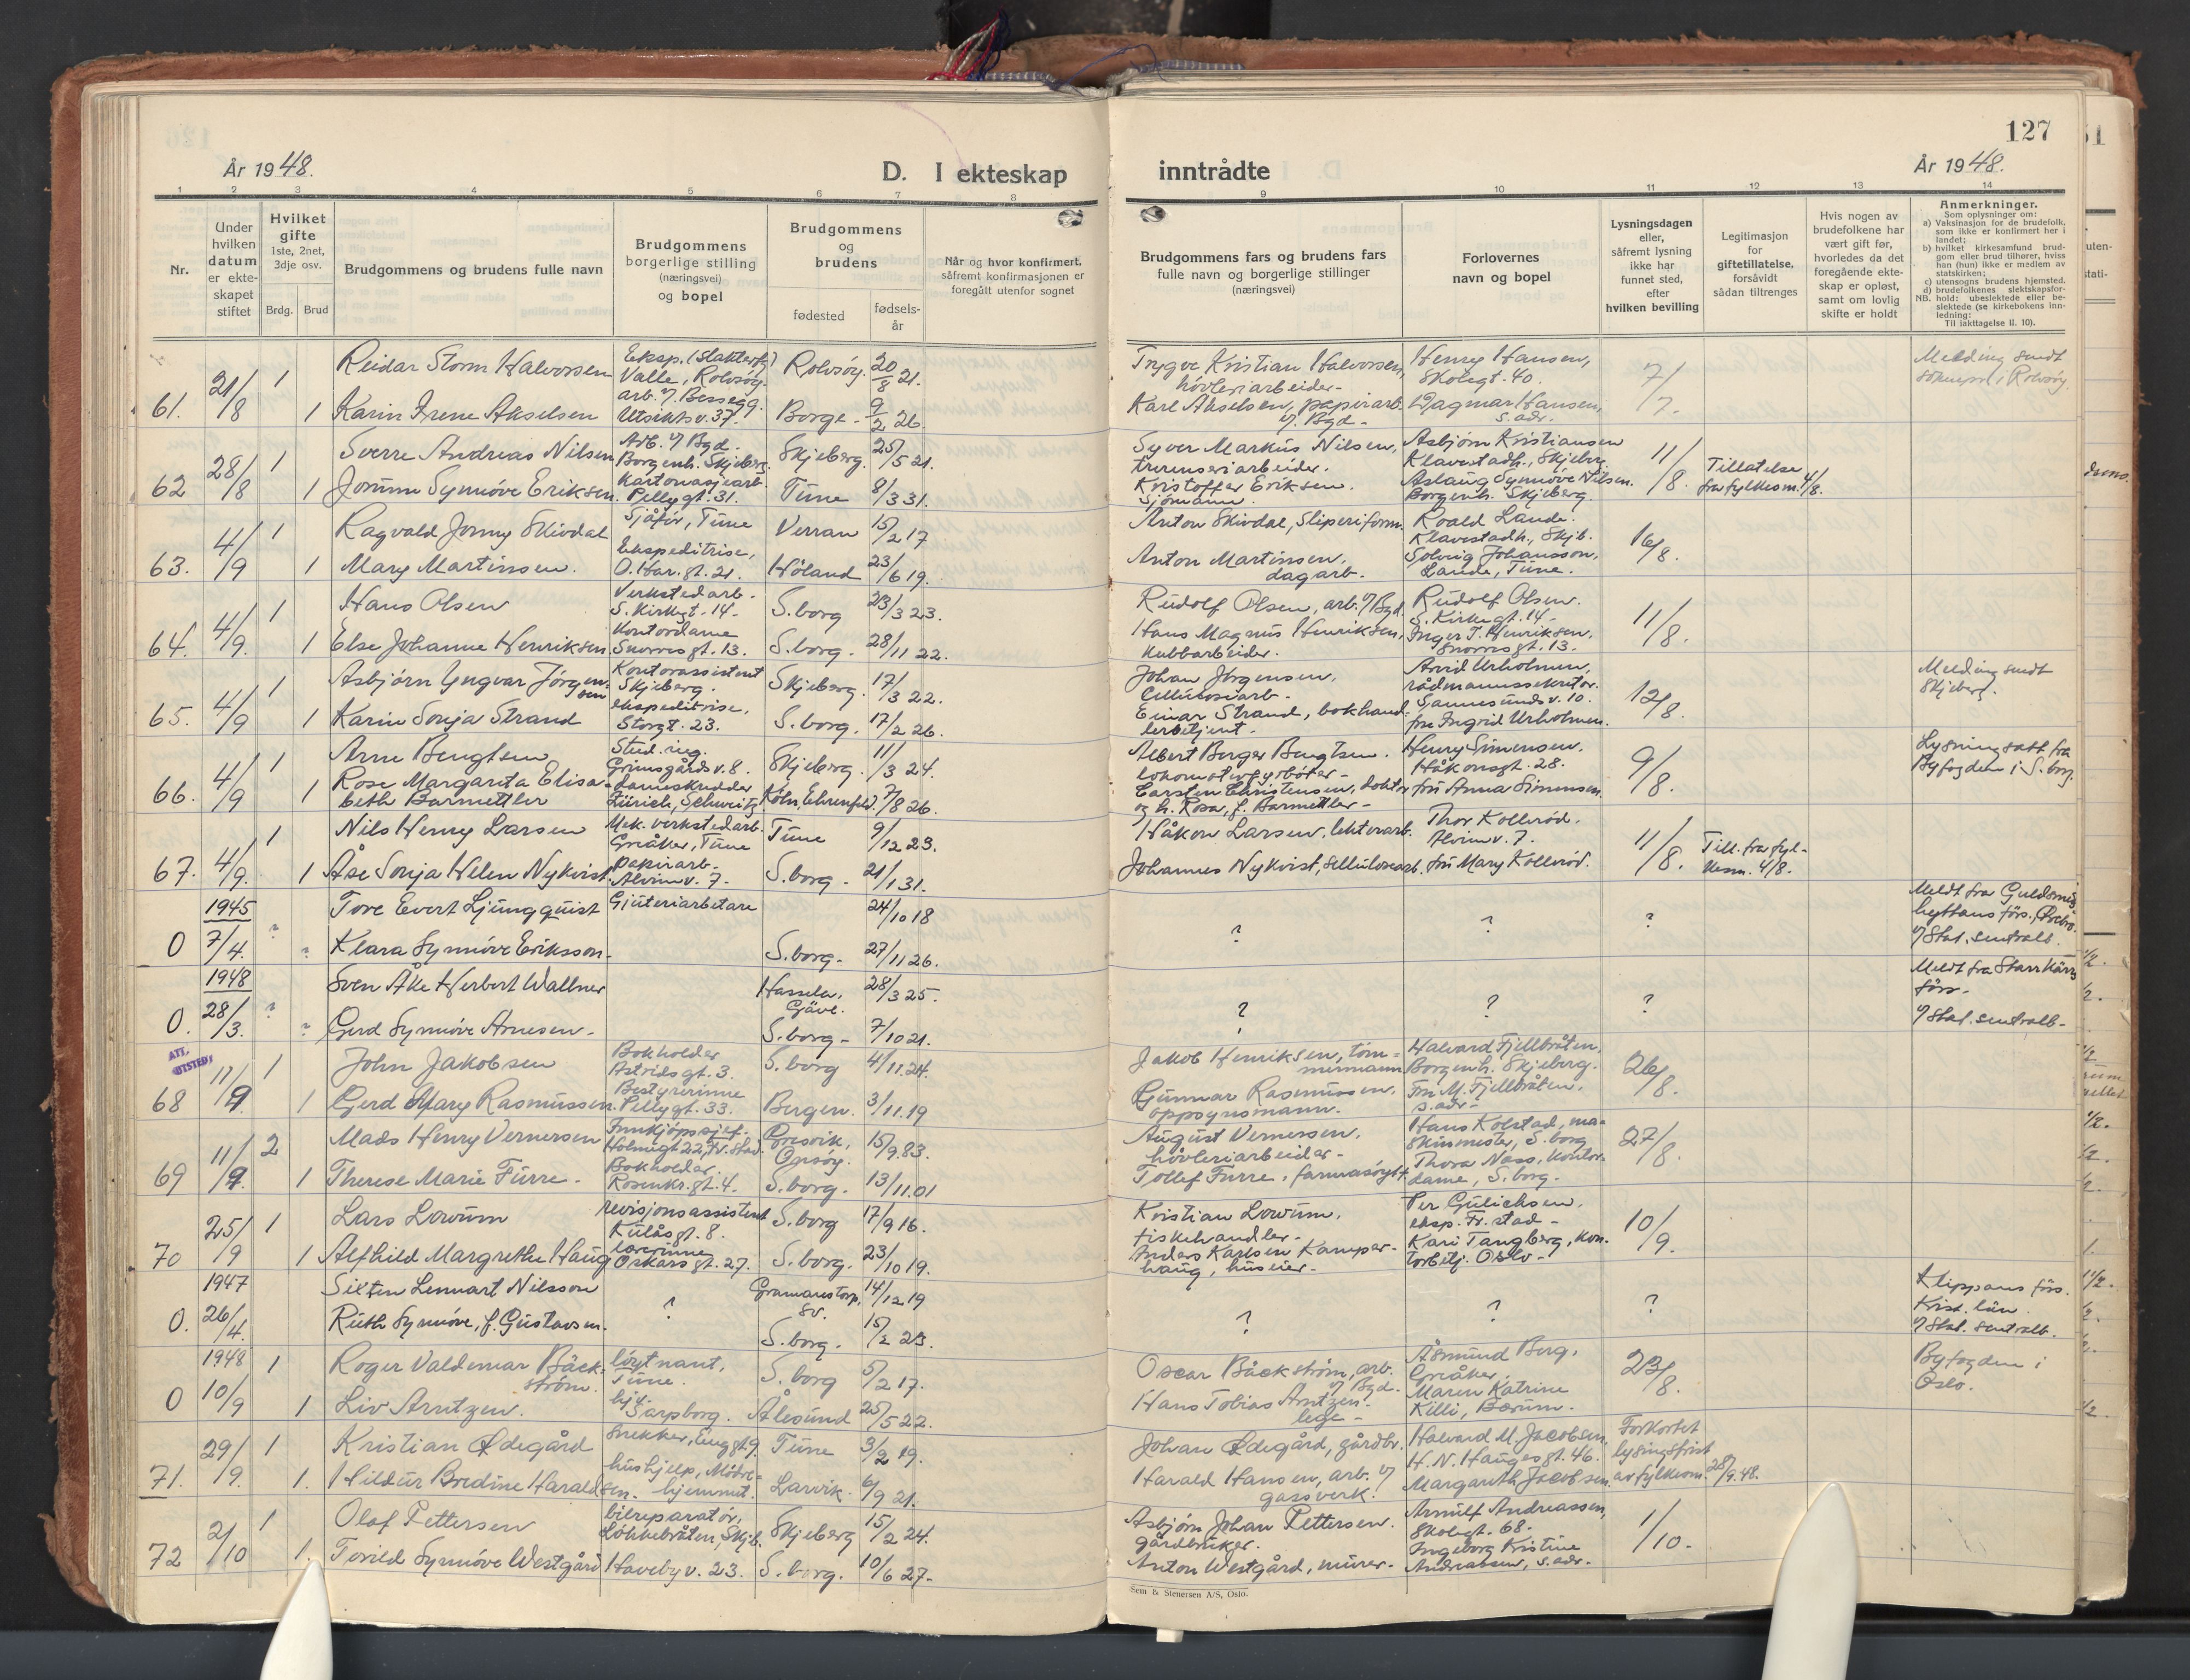 127
År 1948.
D. I ekteskap
inntrådte
År 1948.
1 2 3 4 5 6 7 8 9 10 11 12 13 14
Nr.
Under hvilken datum er ekteskapet stiftet
Hvilket gifte
1ste, 2net, 3dje osv.
Brdg. Brud
Brudgommens og brudens fulle navn
Brudgommens borgerlige stilling (næringsvei) og bopel
Brudgommens og brudens
fødested
fødsels-år
Når og hvor konfirmert, såfremt konfirmasjonen er foregått utenfor sognet
Brudgommens fars og brudens fars fulle navn og borgerlige stillinger (næringsvei)
Forlovernes navn og bopel
Lysningsdagen eller, såfremt lysning ikke har funnet sted, efter hvilken bevilling
Legitimasjon for giftetillatelse, forsåvidt sådan tiltrenges
Hvis nogen av brudefolkene har vært gift før, hvorledes da det foregående ekteskap er opløst, samt om lovlig skifte er holdt
Anmerkninger.
Som oplysninger om:
a) Vaksinasjon for de brudefolk, som ikke er konfirmert her i landet;
b) hvilket kirkesamfund brudgom eller brud tilhører, hviss han (hun) ikke er medlem av statskirken;
c) utensogns brudens hjemsted.
d) brudefolkenes slektskapsforhold: ubeslektede eller beslektede (se kirkebokens innledning:
NB. Til iakttagelse II. 10).
61. 21/8 1 Reidar Storm Halvorsen Eksp. (Slakterfg) Valle, Rolvsøy. Rolvsøy. 20/8 21. Trygve Kristian Halvorsen, høvleriarbeider- Henry Hansen, Skolegt. 40. 7/7. Melding sendt sokneprest i Rolvsøy
1 Karin Irene Akselsen arb. v/ Bessegg. Utsiktsv. 37. Borge- 9/2 26. Karl Akselsen, papirarb. v/ Bgd- Dagmar Hansen, s. adr.
62 28/8 1 Sverre Andreas Nilsen Arb. v/ Bgd. Borgenh. Skjeberg. Skjeberg. 25/5 21. Syver Markus Nilsen, Asbjørn Kristiansen Klavestadh., Skjeberg 11/8. Tillatelse fra fylkesm. 4/8.
1 Jorunn Synnøve Eriksen. Kartonasjearb. Pellygt. 31. Tune 8/3 31. Kristoffer Eriksen. Sjømann. Aslaug Synnøve Nilsen. Borgenh. Skjeberg
63. 4/9 1 Ragvald Jonny Skivdal Sjåfør, Tune Verran 15/2 17 Anton Skivdal, Sliperiform. Roald Lande. Klavestadh., Skjb. 16/8.
1 Mary Martinsen. Ekspeditrise, O. Har. gt. 21. Høland 23/6 19. Anton Martinsen, dagarb. Solveig Johansson, Lande, Tune.
64. 4/9. 1 Hans Olsen Verkstedarb. S. Kirkegt. 14- S. borg 23/3 23. Rudolf Olsen, arb. v/ Bgd. Rudolf Olsen. S. Kirkegt. 14- 11/8.
1 Else Johanne Henriksen Kontordame Snorresgt. 13. S. borg. 28/11 22. Hans Magnus Henriksen, Kubbarbeider. Inger J. Henriksen, Snorresgt. 13.
65. 4/9 1 Asbjørn Yngvar Jörgensen Kontorassistent Skjeberg. Skjeberg. 17/3 22. Johan Jörgensen, Cellulosearb- Arvid Urholmen, rådmannssekretær. Sannesundsv. 10. 12/8. Melding sendt Skjeberg.
1 Karin Sonja Strand ekspeditrise, Storgt. 23. S. borg. 17/2 26. Einar Strand, bokhandlerbetjent. fru Ingrid Urholmen.
66. 4/9 1 Arne Bengtsen Stud. ing. Grimsgårdsv. 8. Skjeberg. 11/3 24. Albert Birger Bengtsen. lokomotivfyrbøter- Henry Simensen, Håkonsgt. 28. 9/8. Lysningsatt. fra Byfogden i S. borg
1 Rose Margarita Elisabeth Barmettler dameskredder Zürich, Schweitz Köln Ehrenfeld. 7/8 26. Carsten Christensen, doktor og h. Rosa, f. Barmettler- fru Anna Simensen.
67. 4/9. 1 Nils Henry Larsen Mek. verkstedarb. Greåker, Tune Tune 9/12 23. Håkon Larsen, lekterarb. Thor Kollerød. Alvimv. 7. 11/8. Till. fra fylkesm. 4/8.
1 Åse Sonja Helen Nykvist. papirarb- Alvimv. 7- S. borg- 21/1 31. Johannes Nykvist, sellulosearb. fru Mary Kollerød.
1945
0 7/4. ? Tore Evert Ljungquist Gjuteriarbetare 24/10 18 ? ? ? Meldt fra Guldsmedshyttans förs., Örebro. v/ Stat. sentralb.
? Klara Synnöve Eriksson- S. borg- 27/11 26.
1948
0. 28/3. ? Sven Åke Herbert Wallner Hassela, Gävl. 28/3 25. ? ? ? Meldt fra Starrkärrs förs- v/ Stat. sentralb-
? Gerd Synnøve Arnesen- S. borg- 7/10 21.
ATT. UTSTEDT
68 11/9 1 John Jakobsen Bokholder Astridsgt. 3. S. borg 4/11. 24. Jakob Henriksen, tømmermann Halvard Fjellbråten, Borgenh. Skjeberg. 26/8.
1 Gerd Mary Rasmussen. Bestyrerinne Pellygt. 33. Bergen. 3/11. 19 Gunnar Rasmussen, oppsynsmann. Fru M. Fjellbråten, s. adr-
69 11/9. 2 Mads Henry Vernersen Innkjøpssjef- Holmegt 22, Fr. stad. Gresvik, Onsøy. 15/9. 83. August Vernersen, høvleriarbeider- Hans Kolstad, maskinmester, S. borg 27/8.
1 Therese Marie Furre. Bokholder. Rosenkr. gt. 4. S. borg. 13/11. 01 Tollef Furre, farmasøyt + Thora Nass, kontordame, S. borg.
70 25/9 1 Lars Lowum revisjonsassistent Kulåsgt. 8. S. borg 17/9 16. Kristian Lowum, fiskehandler- Per Gulichsen, eksp. Fr. stad- 10/9.
1 Alfhild Margrethe Haug lærerinne Oskarsgt. 27. S. borg. 23/10 19. Anders Karlsen Kamperhaug, huseier- Kari Tangberg, kontorbetj. Oslo-
1947
0. 26/4. Sixten Lennart Nilsson ? Gramanstorp, Sv. 14/12 19 ? ? ? Klippans förs. Krist. län. v/ Stat. sentralb.
Ruth Synnöve, f. Gustavsen. S. borg. 15/2 23.
1948
0 10/9 1 Roger Valdemar Bäckström. löytnant, Tune. S. borg 5/2 17. Oscar Bäckstrøm, arb. v/ Bgd- Åsmund Berg, Greåker, 23/8. Byfogden i Oslo.
1 Liv Arntzen. hj. Sarpsborg. Ålesund 25/5 22. Hans Tobias Arntzen. lege- Maren Katrine Killi, Bærum.
71. 29/9. 1 Kristian Ødegård Snekker, Enggt. 9. Tune 3/2 19. Johan Ødegård, gårdbr. Halvard M. Jacobsen, H. N. Hauges gt. 46. Forkortet lysningsfrist av fylkesm. 28/9. 48.
1. Hildur Bredine Haraldsen. hushjelp, Mødrehjemmet. Larvik. 6/9 21. Harald Hansen, arb. v/ gassverk. Margareth Jacobsen.
72 2/10 1 Olaf Pettersen bilreparatør, Løkkebråten, Skjb. Skjeberg 15/2 24. Asbjørn Johan Pettersen. gårdbruker. Arnulf Andreassen, Skolegt. 68. 1/10-
1. Torild Synnøve Westgård Havebyv. 23. S. borg. 10/6 27- Anton Westgård, murer- Ingeborg Kristine Andreassen, s. adr-
Sem & Stenersen A/S, Oslo.